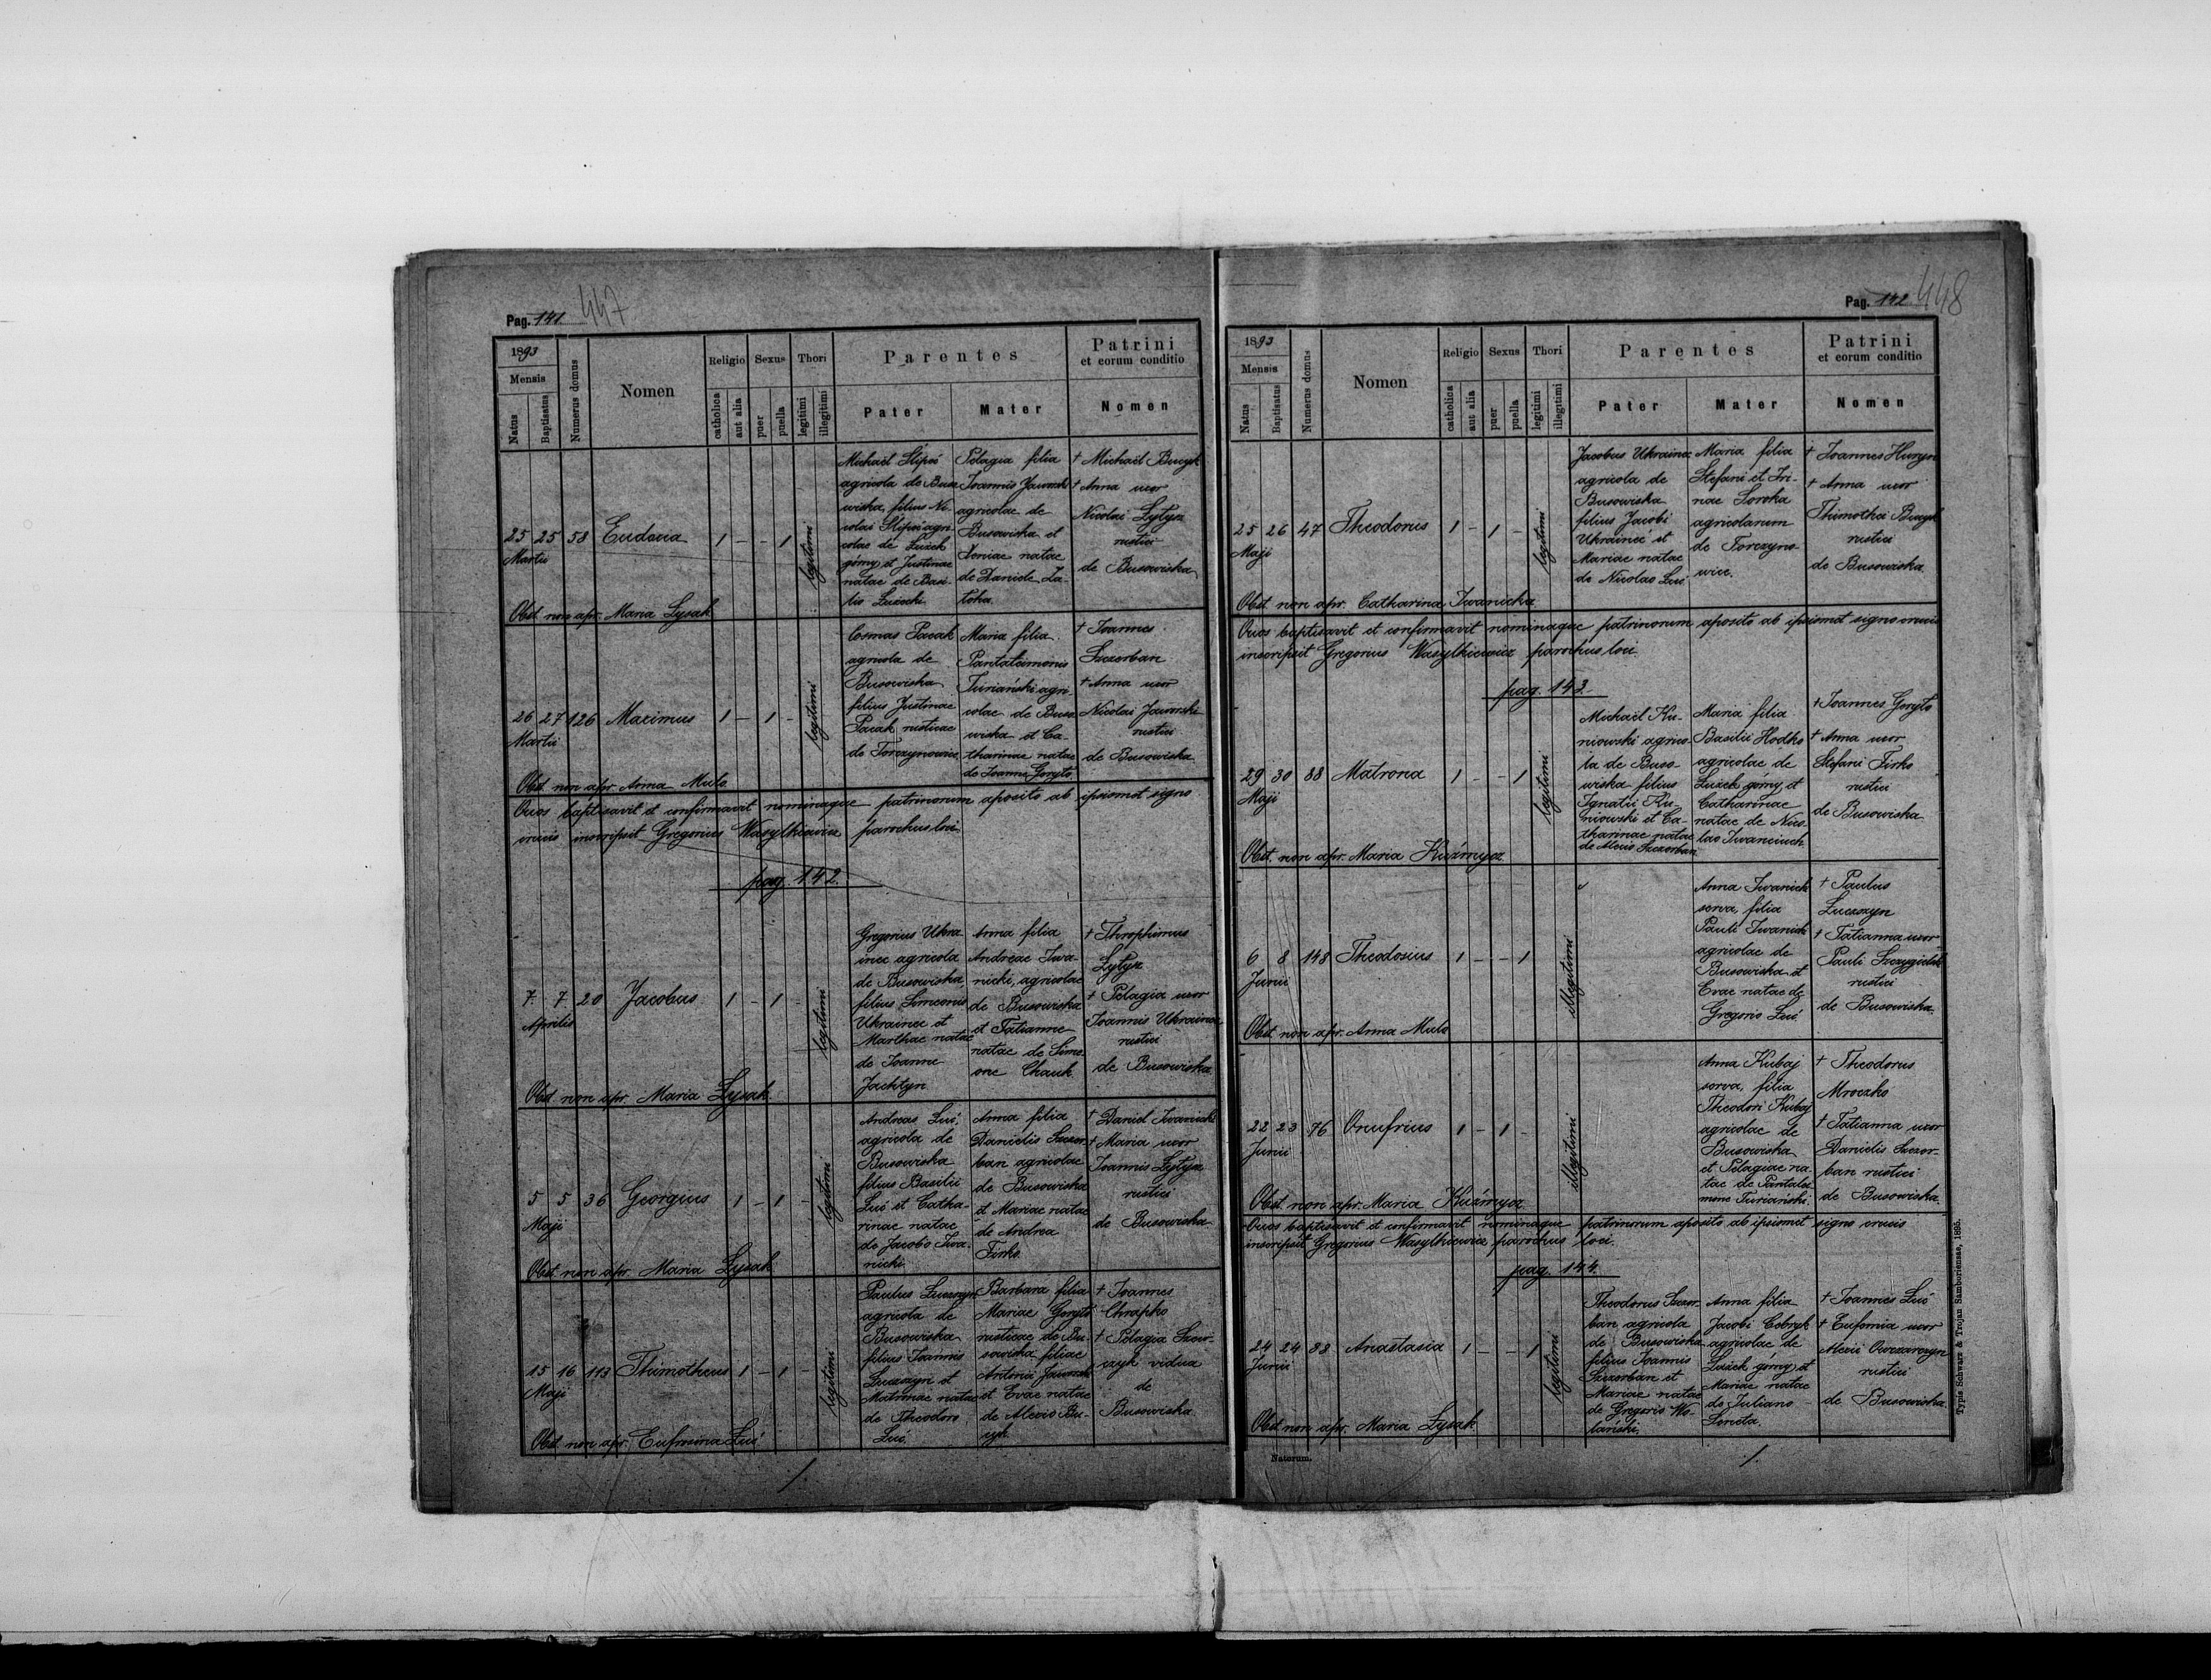 Pag. 141 447
1893
Mensis
Natus
Baptisatus
Numerus domus
Nomen
Religio
catholica
aut alia
Sexus
puer
puella
Thori
legitimi
illegitimi
Parentes
Pater
Mater
Patrini
et eorum conditio
Nomen
25 25 58 Eudocia 1 - - 1 legitimi
Martii
Michaël Slipić
agricola de Buso
wiska, filius Ni
colai Slipić agri
colae de Łużek
górny et Justinae
natae de Basi
lio Łużecki
Pelagia filia
Joannis Jaworski
agricolae de
Busowiska et
Xeniae natae
de Daniele Za-
toka
† Michaël Bucyk
† Anna uxor
Nicolai Łytyz
rustici
de Busowiska
Obst. non apr. Maria Łysak
26 27 126 Maximus 1 - 1 - legitimi
Martii
Cosmas Pacak
agricola de
Busowiska
filius Justinae
Pacak rusticae
de Torczynowice
Maria filia
Pantaleimonis
Turiański agri
colae de Buso
wiska et Ca-
tharinae natae
de Joanne Goryło
† Joannes
Szczerban
† Anna uxor
Nicolai Jaworski
rustici
de Busowiska
Obst. non apr. Anna Mulo
Quos baptisavit et confirmavit nominaque patrinorum aposito ab ipsismet signo
crucis inscripsit Gregorius Wasylkiewicz parochus loci
pag. 142.
7 7 20 Jacobus 1 - 1 - legitimi
Aprilis
Gregorius Ukra
inec agricola
de Busowiska,
filius Simeonis
Ukrainec et
Marthae natae
de Joanne
Jachtyn
Anna filia
Andreae Iwa-
nicki, agricolae
de Busowiska
et Tatianne
natae de Sime
one Chauk
† Throphimus
Łytyz
† Pelagia uxor
Joannis Ukrainec
rustici
de Busowiska
Obst. non apr. Maria Łysak.
5 5 36 Georgius 1 - 1 - legitimi
Maji
Andreas Luć,
agricola de
Busowiska
filius Basilii
Luć et Catha-
rinae natae
de Jacobo Iwa-
nicki.
Anna filia
Danielis Szczer-
ban agricolae
de Busowiska
et Mariae natae
de Andrea
Firko.
† Daniel Iwanicki
† Maria uxor
Joannis Łytyz
rustici
de Busowiska
Obst. non apr. Maria Łysak
15 16 113 Thimotheus 1 - 1 - legitimi
Maji
Paulus Łuczczyn
agricola de
Busowiska
filius Joannis
Łuczczyn et
Matronae natae
de Theodoro
Luć.
Barbara filia
Mariae Goryło
rusticae de Bu-
sowiska filiae
Antonii Jaworski
et Evae natae
de Alexio Bu-
cyk.
† Joannes
Chrapko
† Pelagia Szew-
czyk vidua
de
Busowiska
Obst. non apr. Eufrosina Luć
Pag. 142 448
1893
Mensis
Natus
Baptisatus
Numerus domus
Nomen
Religio
catholica
aut alia
Sexus
puer
puella
Thori
legitimi
illegitimi
Parentes
Pater
Mater
Patrini
et eorum conditio
Nomen
25 26 47 Theodorus 1 - 1 - legitimi
Maji
Jacobus Ukrainec
agricola de
Busowiska
filius Jacobi
Ukrainec et
Mariae natae
de Nicolao Luć
Maria filia
Stefani et Iri-
nae Soroka
agricolarum
de Torczyno-
wice.
† Joannes Huryn
† Anna uxor
Thimothei Bucyk
rustici
de Busowiska.
Obst. non apr. Catharina Iwanicka
Quos baptisavit et confirmavit nominaque patrinorum aposito ab ipsismet signo crucis
inscripsit Gregorius Wasylkiewicz parochus loci.
pag. 143.
29 30 88 Matrona 1 - - 1 legitimi
Maji
Michaël Ku-
niowski agrico-
la de Buso-
wiska filius
Ignatii Ku-
niowski et Ca-
tharinae natae
de Alexio Szczerban
Maria filia
Basilii Hodko
agricolae de
Łużek górny, et
Catharinae
natae de Nico-
lao Iwanciuch
† Joannes Goryło
† Anna uxor
Stefani Firko
rustici
de Busowiska
Obst. non apr. Maria Kuźmycz
6 8 148 Theodosius 1 - - 1 illegitimi
Junii
Anna Iwanicki
serva, filia
Pauli Iwanicki
agricolae de
Busowiska et
Evae natae de
Gregorio Luć
† Paulus
Łuczczyn
† Tatianna uxor
Pauli Szczygielski
rustici
de Busowiska.
Obst. non apr. Anna Mulo
22 23 76 Onufrius 1 - 1 - illegitimi
Junii
Anna Kubaj
serva, filia
Theodori Kubaj
agricolae de
Busowiska
et Pelagiae na-
tae de Pantalei
mone Turiański.
† Theodorus
Mroczko
† Tatianna uxor
Danielis Szczer-
ban rustici
de Busowiska.
Obst. non apr. Maria Kuźmycz
Quos baptisavit et confirmavit nominaque patrinorum aposito ab ipsismet signo crucis
inscripsit Gregorius Wasylkiewicz parochus loci.
pag. 144.
24 24 88 Anastasia 1 - - 1 legitimi
Junii
Theodorus Szczer-
ban agricola
de Busowiska
filius Joannis
Szczerban et
Mariae natae
de Gregorio Wo-
lański.
Anna filia
Jacobi Cebryk
agricolae de
Łużek górny et
Mariae natae
de Juliano
Seneta.
† Joannes Luć
† Eufemia uxor
Alexii Owczarczyn
rustici
de Busowiska.
Obst. non apr. Maria Łysak
Natorum.
Typis Schwarz & Trojan Samboriensse, 1895.